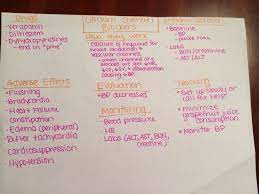 Drugs
- Verapamil
- Diltiazem
- Dihydropyridines
- end in "pine"
Calcium Channel
Blockers
How they work
- Calcium is required for
- when channels
are blocked
vasodilation
causing ↓BP
Administration
- Baseline
- BP
- pulse rate
- Labs
- BUN/creatinine
- AST/ALT
Adverse Effects
- Flushing
- Bradycardia
- Heart Failure
- Constipation
- Edema (peripheral)
- tachycardia
- Cardiosuppression
- Hypotension
Evaluation
- BP decreases
Monitoring
- Blood pressure
- HR
- Labs (ALT, AST, BUN,
creatinine)
Teaching
- Get up slowly or
call for help!
- minimize
grapefruit juice
consumption
- Monitor BP